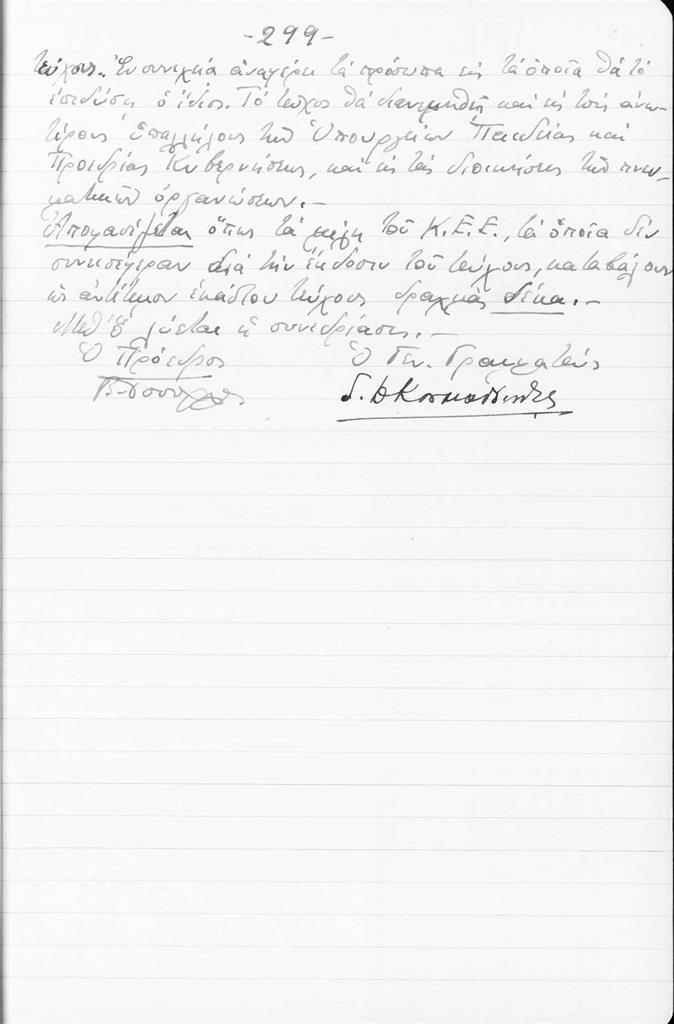 -299-
τεύχους. Ἐν συνεχείᾳ ἀναφέρει τά πρόσωπα εἰς τά ὁποῖα θά τό
ἐπιδώσῃ ὁ ἴδιος. Τό τεῦχος θά διανεμηθῇ καί εἰς τούς ἀνω-
τέρους ὑπαλλήλους τῶν Ὑπουργείων Παιδείας καί
Προεδρίας Κυβερνήσεως, καί εἰς τάς διοικήσεις τῶν πνευ-
ματικῶν ὀργανώσεων.-
Ἀποφασίζεται ὅπως τά μέλη τοῦ Κ.Ε.Ε., τά ὁποῖα δέν
συνεισέφεραν διά τήν ἔκδοσιν τοῦ τεύχους, καταβάλουν
ὡς ἀντίτιμον ἑκάστου τεύχους δραχμάς δέκα.-
Μεθ' ὅ λύεται ἡ συνεδρίασις.-
Ὁ Πρόεδρος Ὁ Γεν. Γραμματεύς